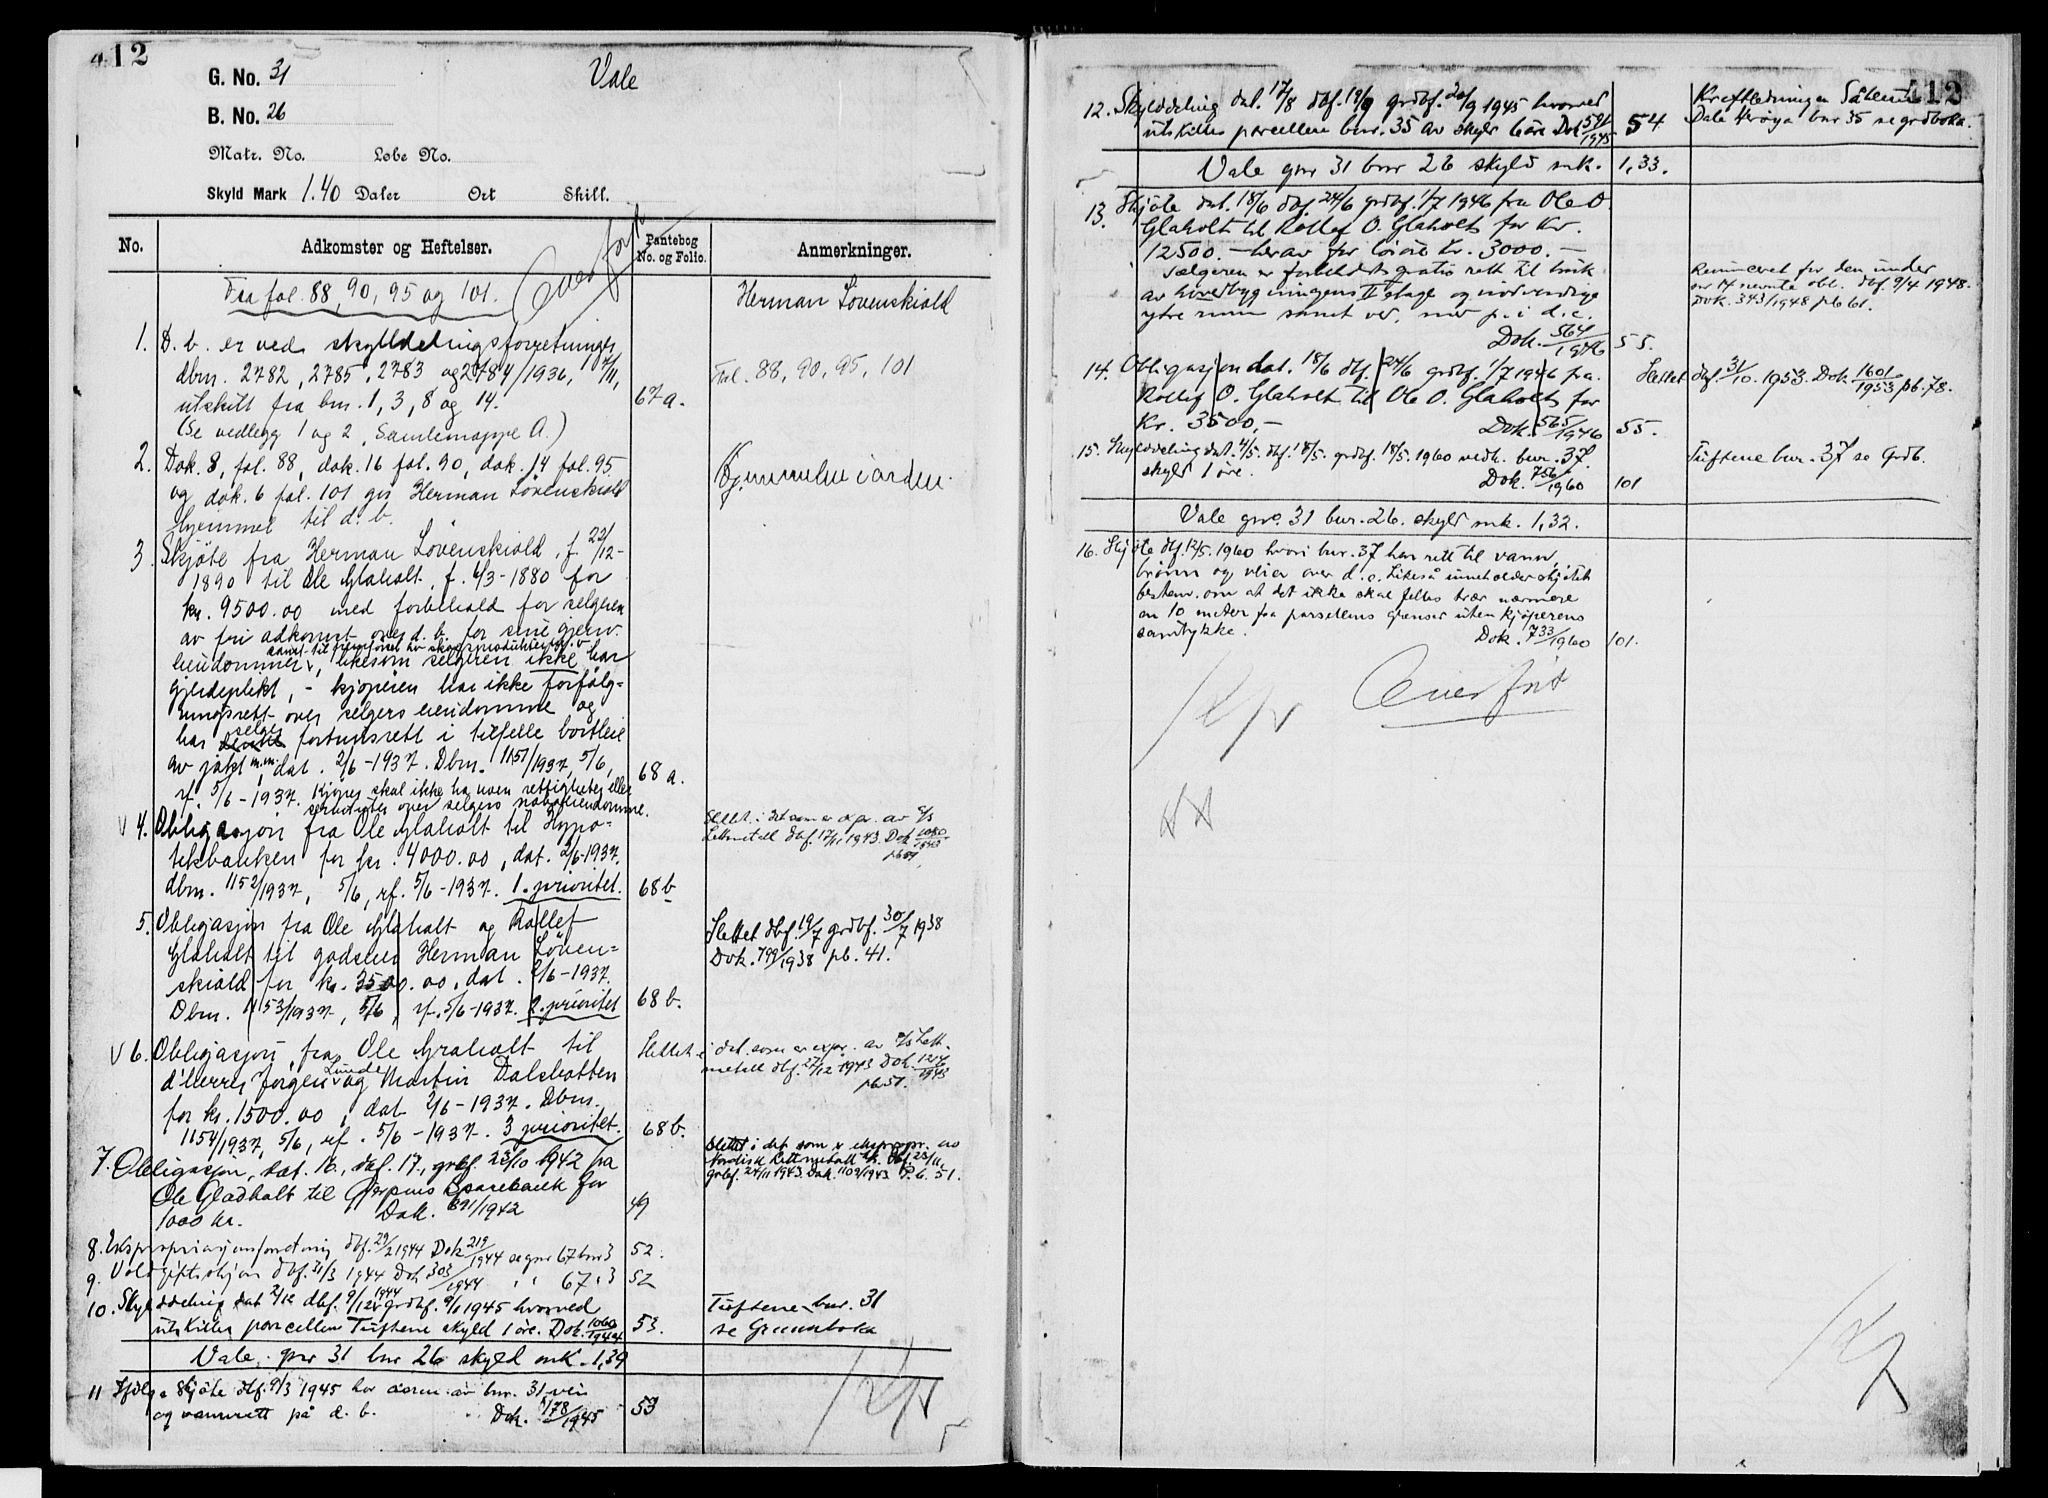 412
G. No. 31
Vale
B. No. 26
Matr. No. Løbe No.
Skyld Mark 1.40 Daler Ort Skill.
No.
Adkomster og Heftelser.
Pantebog
No. og Folio.
Anmerkninger.
Overført
Fra fol. 88, 90, 95 og 101.
Herman Lövenskiold
1. D. b. er ved skylddelingsforretninger
dbm. 2782, 2785, 2783 og 2784/1936, 
utskilt fra bnr. 1, 3, 8 og 14. 67 a.
Fol. 88, 90, 95, 101
(Se vedlegg 1 og 2, Samlemappe A.)
2. Dok. 8, fol. 88, dok. 16 fol. 90, dok. 14 fol. 95
og dok. 6 fol. 101 gir Herman Lövenskiold
hjemmel til d. b.
Hjemmelen i orden.
3. Skjøte fra Herman Lövenskiold, f. 22/12-
1890 til Ole Glaholt, f. 4/3-1880 for
kr. 9500.00 med forbehold for selgeren
av fri adkomst over d. b. for sine gjenv.
eiendommer samt til fremføring av skogsprodukter, likesom selgeren ikke har
gjerdeplikt, - kjøperen har ikke forfølg=
ningsrett over selgers eiendomme og
har selger fortrinsrett i tilfelle bortleie
av jakt m.m. dat. 2/6-1937. Dbm. 1151/1937, 5/6,
rf. 5/6-1937. Kjøper skal ikke ha noen rettigheter eller
servitutter over selgers naboeiendomme. 68 a.
V 4. Obligasjon fra Ole Glaholt til Hypo=
tekbanken for kr. 4000.00, dat. 2/6-1937.
dbm. 1152/1937, 5/6, rf. 5/6-1937. 1. prioritet. 68 b
Slettet i det som er expr. av A/S
Lettmetall dbf. 17/11 1943. Dok.
5. Obligasjon fra Ole Glaholt og Rollef
Glaholt til godseier Herman Löven=
skiold for kr. 3500.00, dat. 2/6-1937.
Dbm. 1153/1937, 5/6, rf. 5/6-1937. 2. prioritet 68 b.
Slettet dbf. 19/7 grdbf. 30/7 1938
Dok. 799/1938 pb. 41.
V 6. Obligasjon fra Ole Graholt til
d'herrer Jørgen Lunde og Martin Dalsbotten
for kr. 1500.00, dat 2/6-1937. Dbm.
1154/1937, 5/6, rf. 5/6-1937. 3 prioritet. 68 b.
Slettet i det som er expr. av A/S Lett-
metall dbf. 27/12 1943 Dok. 1246/1943
pb. 51.
7. Obligasjon, dat. 16., dbf. 17., grbf. 23/10 1942 fra
Ole Gladholt til Gjerpens Sparebank for
1000 kr. Dok. 891/1942 49
Slettet i det som er ekspropr. av
Nordisk Lettmetall A/S. Dbf. 23/11,
Grbf. 24/11 1943. Dok. 1109/1943. P.b. 51.
8. Ekspropriasjonsforretning dbf. 29/2 1944 Dok 219/1944 se gnr 67 bnr 3 52.
9. Voldgiftsskjønn dbf. 31/3 1944 Dok 303/1944 " " 67 " 3 52
10. Skylddeling dat 2/12 dbf. 9/12 1944 grdbf. 9/1 1945 hvorved
utskilles parcellen Tuftene skyld 1 öre. Dok. 1060/1944 53.
Tuftene bnr. 31
se Grunnboka
Vale, gnr 31 bnr 26 skyld mk. 1,39
11 Ifølge Skjøte dbf. 9/3 1945 har eieren av bnr. 31 vei
og vannrett på d. b. Dok. 178/1945 53
412
12. Skylddeling dat. 17/8 dbf. 19/9 grdbf. 20/9 1945 hvorved
utskilles parcellen bnr. 35 av skyld 6 öre Dok 591/1945 54
Kraftledningen
Dale Herøya bnr 35 se grdboka.
Vale gnr 31 bnr 26 skyld mk. 1,33.
13. Skjöte dat. 18/6 dbf. 24/6 grdbf. 1/7 1946 fra Ole O.
Glaholt til Rollef O. Glaholt for Kr.
12500.- herav for lösöre kr. 3000.-
Selgeren er forbeholdt gratis rett til bruk
av hovedbygningens II etage og nödvendige
ytre rum samt ved, mv p. i d. e.
Dok. 564/1946 55.
Reiniseret for den under
nr 14 nevnte obl. dbf. 9/4 1948.
Dok. 343/1948 pb 61.
14. Obligasjon dat. 18/6 dbf. 24/6 grdbf. 1/7 1946 fra
Rollef O. Glaholt til Ole O. Glaholt for
Kr. 3500,- Dok. 565/1946 55.
Slettet dbf. 31/10. 1953. Dok. 1601/1953 pb. 78.
15. Skylddeling dat. 4/5. dbf. 18/5. grdbf. 18/5. 1960 vedk. bnr. 37.
skyld 1 öre. Dok. 756/1960 101
Tuftene bnr. 37 se Grdb.
Vale gnr. 31 bnr. 26. skyld mk. 1,32.
16. Skjöte dbf. 12/5. 1960 hvori bnr. 37 har rett til vann,
brönn og veier over d. e. Likeså inneholder skjötet
bestem. om at det ikke skal felles trær nærmere
en 10 meter fra parsellens grenser uten kjöperens
samtykke. Dok. 733/1960 101.
Overfört